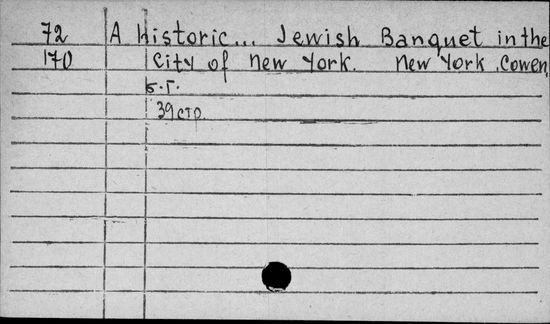 72 A Historic... Jewish Banquet in the
170 City of New York. New York, Cowen
б.г.
39 стр.